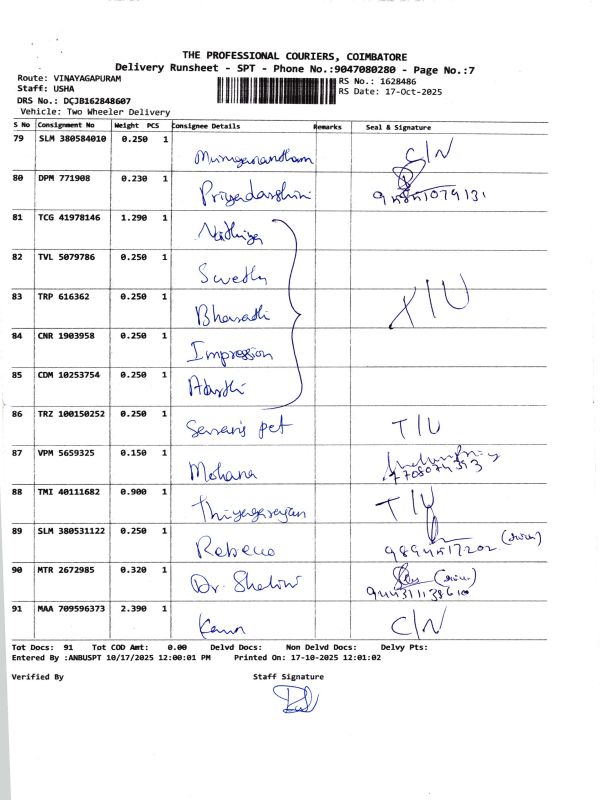 THE PROFESSIONAL COURIERS, COIMBATORE
Delivery Runsheet - SPT - Phone No.:9047080280 - Page No.:7
Route: VINAYAGAPURAM
Staff: USHA
DRS No.: DCJB162848607
Vehicle: Two Wheeler Delivery
RS No.: 1628486
RS Date: 17-Oct-2025
S No Consignment No Weight PCS Consignee Details Remarks Seal & Signature
79 SLM 380584010 0.250 1 Muruganandham C/N
80 DPM 771908 0.230 1 Priyadarshini
81 TCG 41978146 1.290 1 Nithiya
82 TVL 5079786 0.250 1 Swetha
83 TRP 616362 0.250 1 Bharathi T/U
84 CNR 1903958 0.250 1 Impression
85 CDM 10253754 0.250 1
86 TRZ 100150252 0.250 1 pet T/U
87 VPM 5659325 0.150 1 Mohana
88 TMI 40111682 0.900 1 Thiyagarajan T/U
89 SLM 380531122 0.250 1 Rebecca 9894517202
90 MTR 2672985 0.320 1 Dr. Shalini
91 MAA 709596373 2.390 1 C/N
Tot Docs: 91 Tot COD Amt: 0.00 Delvd Docs: Non Delvd Docs: Delvy Pts:
Entered By :ANBUSPT 10/17/2025 12:00:01 PM Printed On: 17-10-2025 12:01:02
Verified By Staff Signature